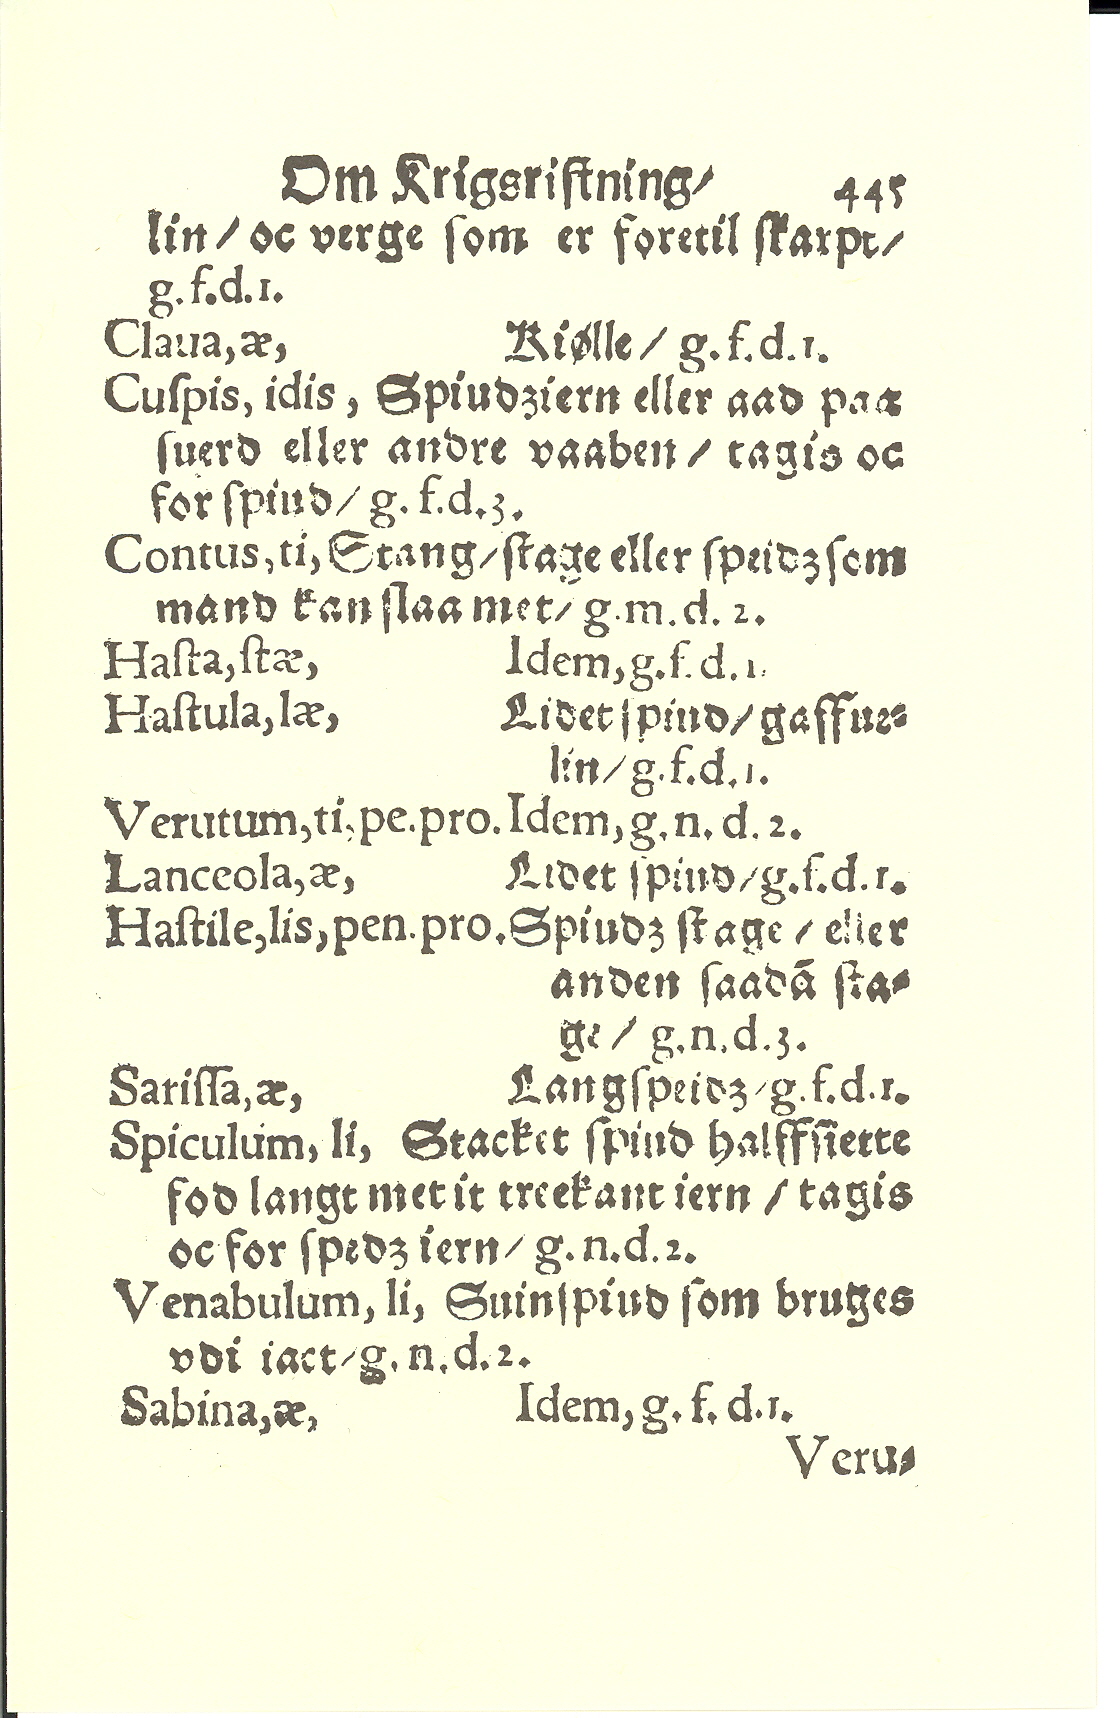 Om Krigsristning/ 445
lin/ oc verge som er foretil skarpt/
g. f. d. 1.
Claua, æ, Kiølle/ g. f. d. 1.
Cuſpis, idis, Spiudziern eller aad paa
ſuerd eller andre vaaben/ tagis oc
for ſpiud/ g. f. d. 3.
Contus, ti, Stang/ ſtage eller ſpeidz ſom
mand kan ſlaa met/ g. m. d. 2.
Haſta, ſtæ, Idem, g. f. d. 1.
Haſtula, læ, Lidet ſpiud/ gaffue⸗
lin/ g. f. d. 1.
Verutum, ti, pe. pro. Idem, g. n. d. 2.
Lanceola, æ, Lidet ſpiud/ g. f. d. 1.
Haſtile, lis, pen. pro. Spiudz ſtage/ eller
anden ſaadā ſta⸗
ge/ g. n. d. 3.
Sariſſa, æ, Langſpeidz/ g. f. d. 1.
Spiculum, li, Stacket ſpiud halffſiette
fod langt met it treekant iern/ tagis
oc for ſpedz iern/ g. n. d. 2.
Venabulum, li, Suinſpiud ſom bruges
vdi iact/ g. n. d. 2.
Sabina, æ, Idem, g. f. d. 1.
Veru⸗